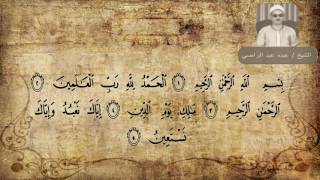 الشيخ / عبده عبد الراضي
بِسْمِ اللَّهِ الرَّحْمَٰنِ الرَّحِيمِ ١ الْحَمْدُ لِلَّهِ رَبِّ الْعَالَمِينَ ٢
الرَّحْمَٰنِ الرَّحِيمِ ٣ مَالِكِ يَوْمِ الدِّينِ ٤ إِيَّاكَ نَعْبُدُ وَإِيَّاكَ
نَسْتَعِينُ ٥